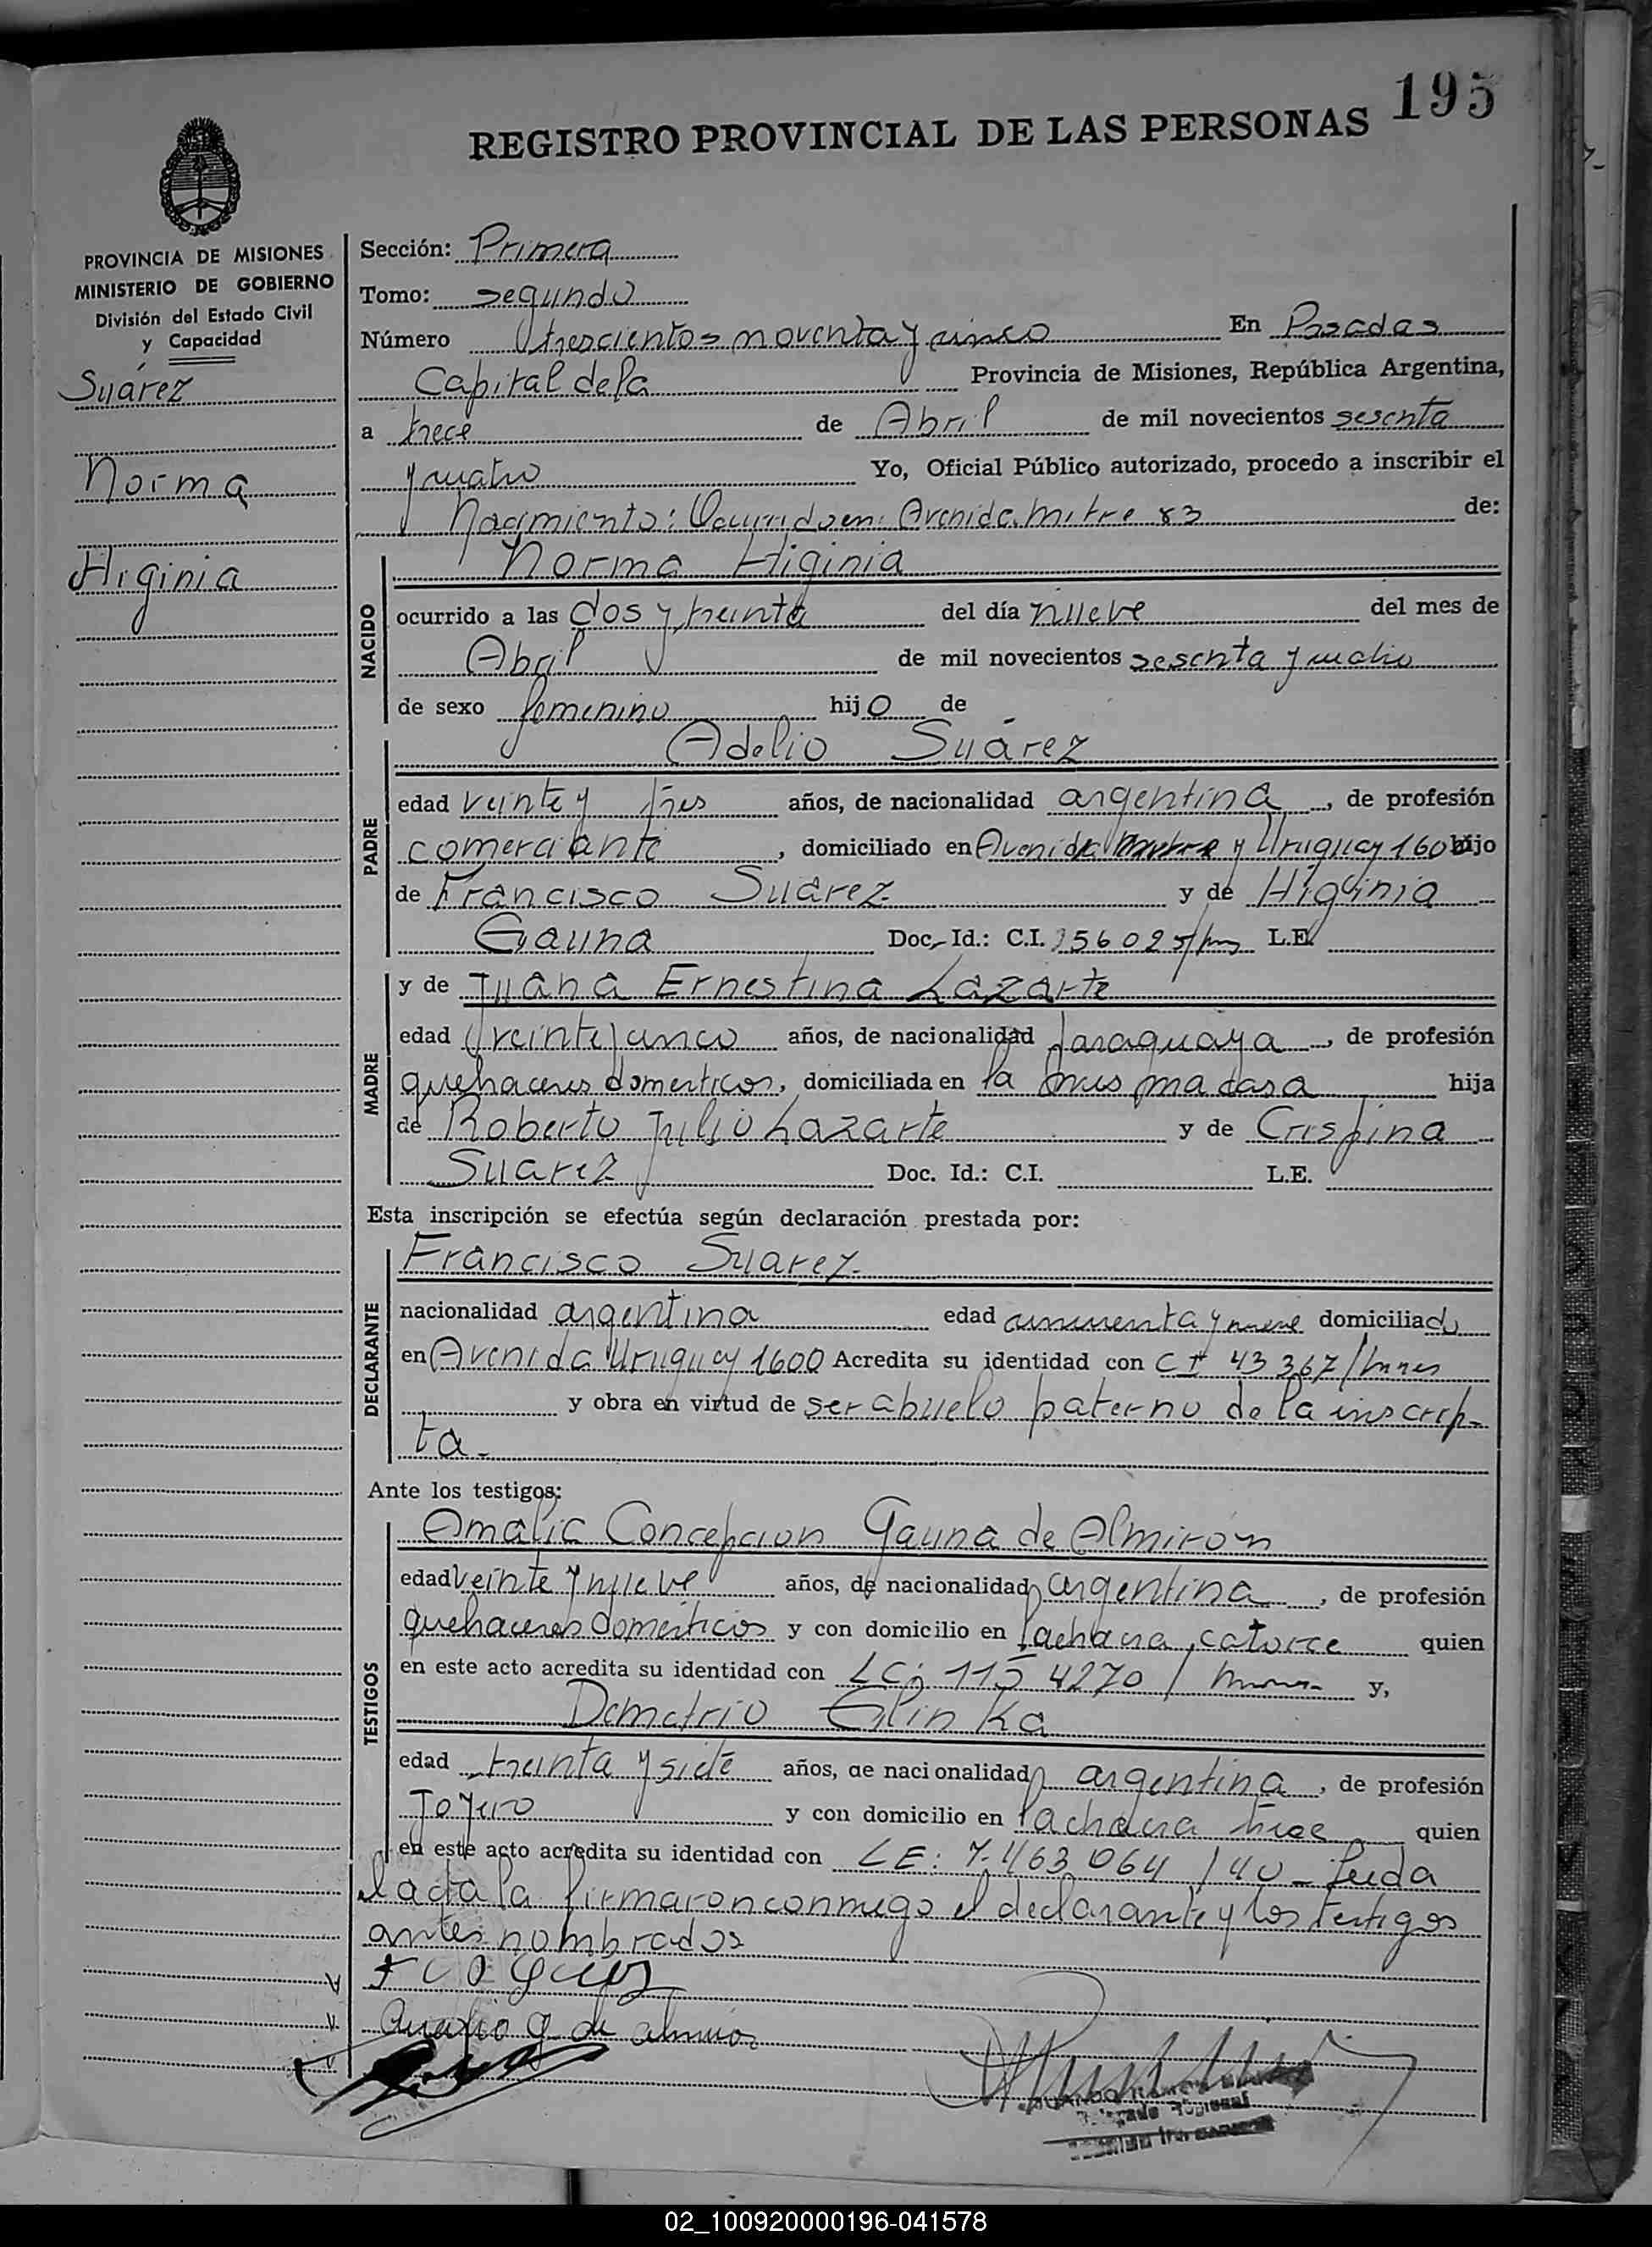 195
REGISTRO PROVINCIAL DE LAS PERSONAS
PROVINCIA DE MISIONES
MINISTERIO DE GOBIERNO
División del Estado Civil
y Capacidad
Suárez
Norma
Higinia
Sección: Primera
Tomo: segundo
Número trescientos noventa y cinco En Posadas
Capital de la Provincia de Misiones, República Argentina,
a trece de Abril de mil novecientos sesenta
y cuatro Yo, Oficial Público autorizado, procedo a inscribir el
Nacimiento: Ocurrido en: Avenida Mitre 83 de:
NACIDO
Norma Higinia
ocurrido a las dos y treinta del día nueve del mes de
Abril de mil novecientos sesenta y cuatro
de sexo femenino hijo de
PADRE
Adelio Suárez
edad veinte y tres años, de nacionalidad argentina, de profesión
comerciante, domiciliado en Avenida y Uruguay 1600 hijo
de Francisco Suárez y de Higinia
Gauna Doc. Id.: C.I. 156025/ L.E.
MADRE
y de Juana Ernestina Lazarte
edad veinte y cinco años, de nacionalidad paraguaya, de profesión
quehaceres domesticos, domiciliada en la misma casa hija
de Roberto Julio Lazarte y de Crispina
Suarez Doc. Id.: C.I. L.E.
Esta inscripción se efectúa según declaración prestada por:
DECLARANTE
Francisco Suarez
nacionalidad argentina edad cincuenta y nueve domiciliado
en Avenida Uruguay 1600 Acredita su identidad con CI 43 367/
y obra en virtud de ser abuelo paterno de la inscrip-
ta.
Ante los testigos:
TESTIGOS
Amalia Concepcion Gauna de Almirón
edad veinte y nueve años, de nacionalidad argentina, de profesión
quehaceres domésticos y con domicilio en la chacra catorce quien
en este acto acredita su identidad con LC: 115 4270 / y,
Demetrio Glinka
edad treinta y siete años, de nacionalidad argentina, de profesión
Joyero y con domicilio en la chacra trece quien
en este acto acredita su identidad con LE: 7.463 064 / 40 - Leida
el acta la firmaron conmigo el declarante y los testigos
antes nombrados
02_100920000196-041578